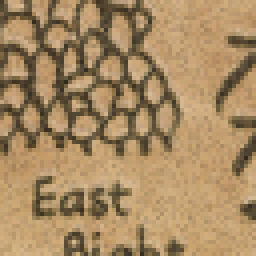 East
Bight